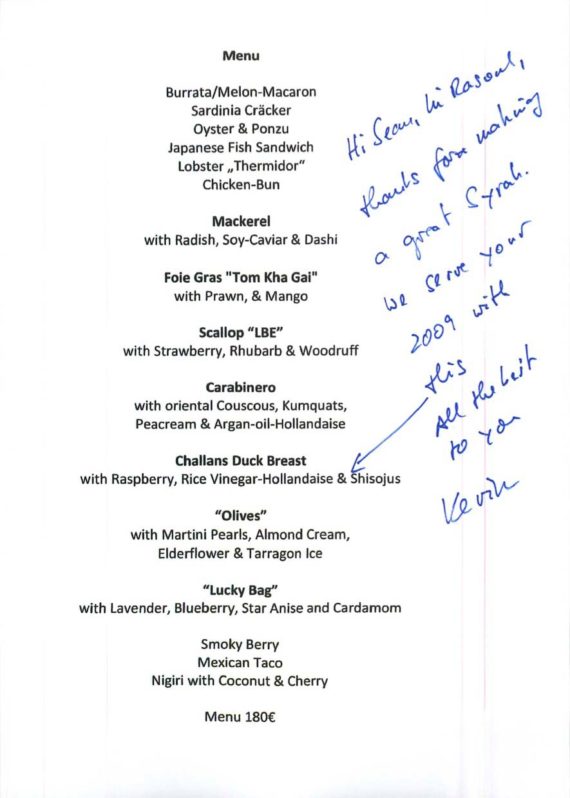 Menu
Burrata/Melon-Macaron
Sardinia Cräcker
Oyster & Ponzu
Japanese Fish Sandwich
Lobster „Thermidor“
Chicken-Bun
Mackerel
with Radish, Soy-Caviar & Dashi
Foie Gras "Tom Kha Gai"
with Prawn, & Mango
Scallop “LBE”
with Strawberry, Rhubarb & Woodruff
Carabinero
with oriental Couscous, Kumquats,
Peacream & Argan-oil-Hollandaise
Challans Duck Breast
with Raspberry, Rice Vinegar-Hollandaise & Shisojus
“Olives”
with Martini Pearls, Almond Cream,
Elderflower & Tarragon Ice
“Lucky Bag”
with Lavender, Blueberry, Star Anise and Cardamom
Smoky Berry
Mexican Taco
Nigiri with Coconut & Cherry
Menu 180€
Hi Sean, hi Rasoul,
thanks for making
a great Syrah.
we serve your
2009 with
this
All the best
to you
Kevin